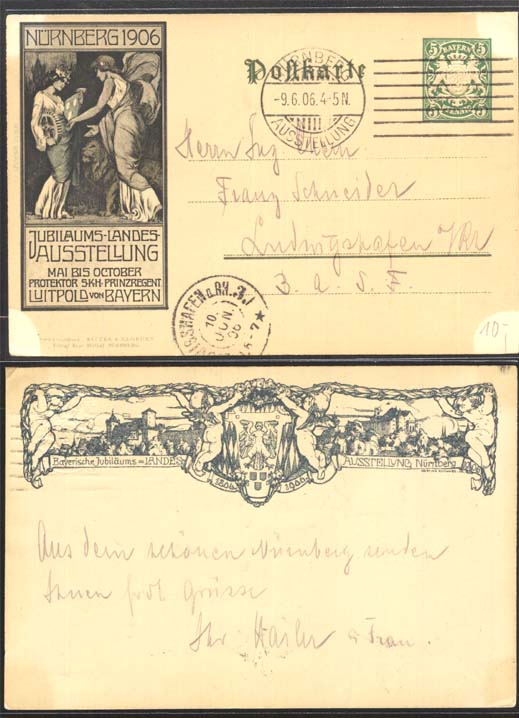 NÜRNBERG 1906
JUBILÄUMS-LANDES-
AUSSTELLUNG
MAI BIS OCTOBER
PROTEKTOR S.K.H. PRINZREGENT
LUITPOLD VON BAYERN
Postkarte
NÜRNBERG
-9.6.06.4-5N.
AUSSTELLUNG
5 BAYERN 5
5 PFENNIG 5
Herrn
Franz Schneider
Ludwigshafen a/Rh
B. a. S. F.
LUDWIGSHAFEN a. RH.
10
JUN
06
10-
Bayerische Jubiläums=LANDES
AUSSTELLUNG Nürnberg
1806 1906
Aus dem schönen Nürnberg senden
Ihnen frdl Grüsse
Ihr Hailer u Frau.